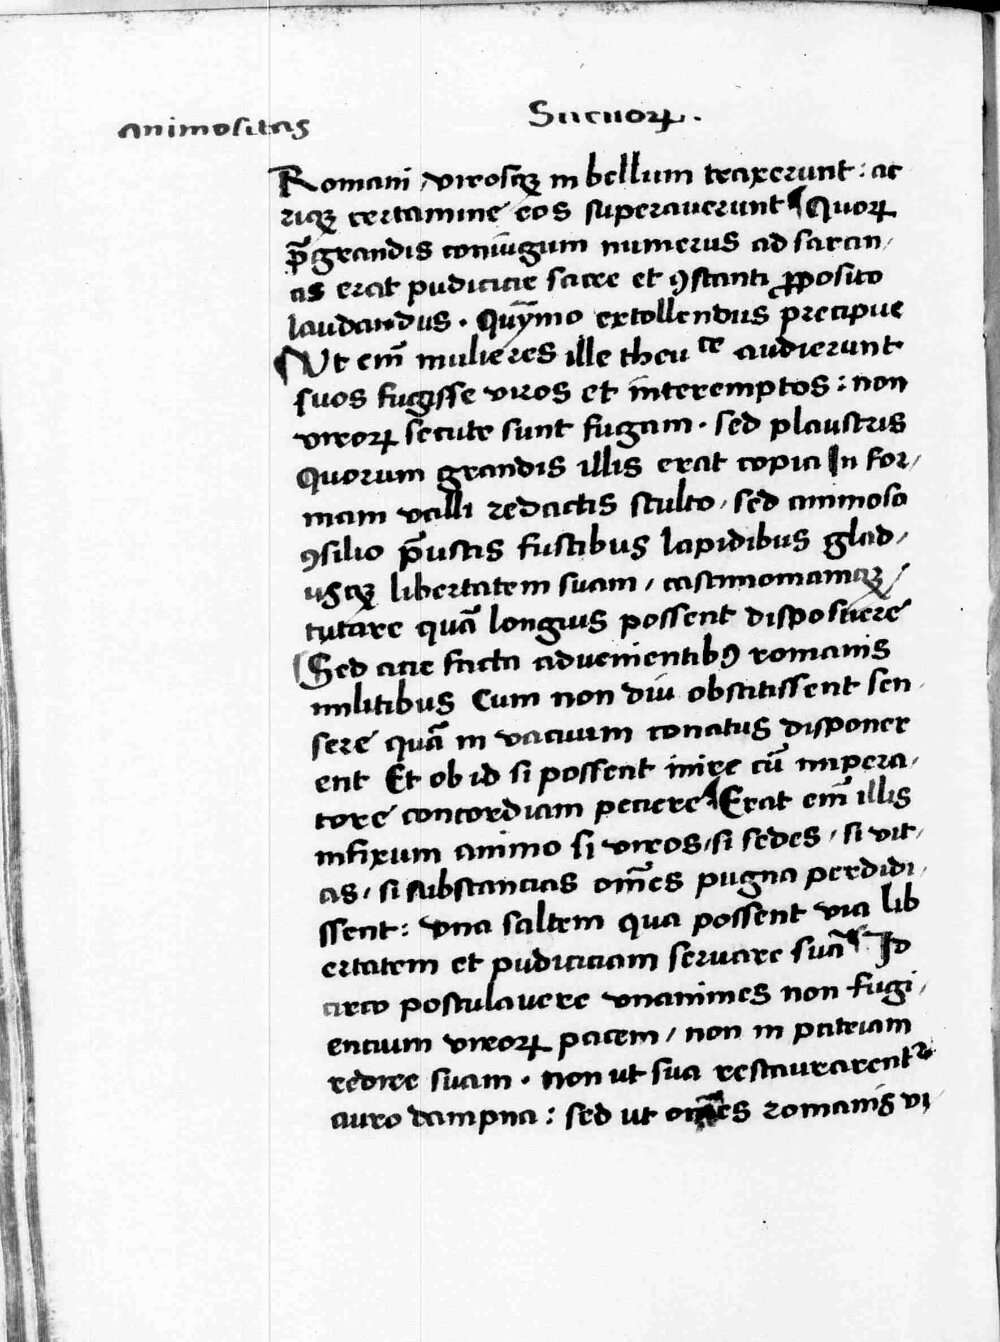 animositas
Sueuoꝝ.
Romani viroscꝫ in bellum traxerunt: ac
ricꝫ certamine eos superauerunt ¶ Quoꝝ
p̄grandis coniugum numerus ad sacan/
as erat pudicicie sacre et ꝯstanti ꝓposito
laudandus. Quȳmo extollendus precipue
¶ Ut em̄ mulieres ille theutce audierunt
suos fugisse viros et interemptos: non
viroꝝ secute sunt fugam. sed plaustris
Quorum grandis illis erat copia In for/
mam valli redactis stulto, sed animoso
ꝯsilio p̄ustis fustibus lapidibus glad/
uscꝫ libertatem suam/ castimoniamcꝫ/
tutare quā longius possent disposuere
¶ Sed acie facta aduenientibꝰ romanis
militibus Cum non diu obstitissent sen
sere quā in vacuum conatus disponer
ent Et ob id si possent inire cū impera/
tore concordiam peciere ¶ Erat em̄ illis
infixum animo si viros/ si sedes, si vit/
as, si substancias om̄es pugna perdidi/
ssent: vna saltem qua possent via lib
ertatem et pudiciciam seruare suā ¶ Id
circo postulauere vnanimes non fugi/
encium viroꝝ pacem/ non in patriam
redire suam. non ut sua restaurarentᷣ
auro dampna: sed ut om̄es romanis vi/